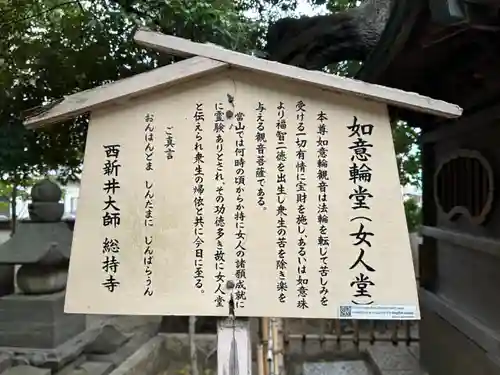 如意輪堂(女人堂)
本尊如意輪観音は法輪を転じて苦しみを
受ける一切有情に宝財を施し、あるいは如意珠
より福智二徳を出生し衆生の苦を除き楽を
与える観音菩薩である。
当山では何時の頃からか特に女人の諸願成就
に霊験ありとされ、その功徳多き故に女人堂
と伝えられ衆生の帰依と共に今日に至る。
ご真言
おんはんどま しんだまに じんばらうん
西新井大師 総持寺